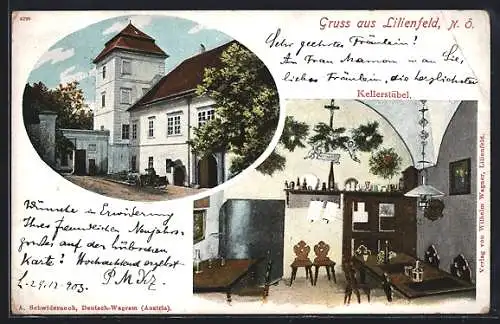 4299
Gruss aus Lilienfeld, N. Ö.
Sehr geehrtes Fräulein!
An Frau Mamon u an Sie,
liebes Fräulein, die herzlichsten
Kellerstübel.
Wünsche in Erwiderung
Ihres freundlichen Neujahrs-
grußes auf der hübschen
Karte! Hochachtend ergebst
P. M.
L. 29.12.903.
A. Schwidernoch, Deutsch-Wagram (Austria).
Verlag von Wilhelm Wagner, Lilienfeld.